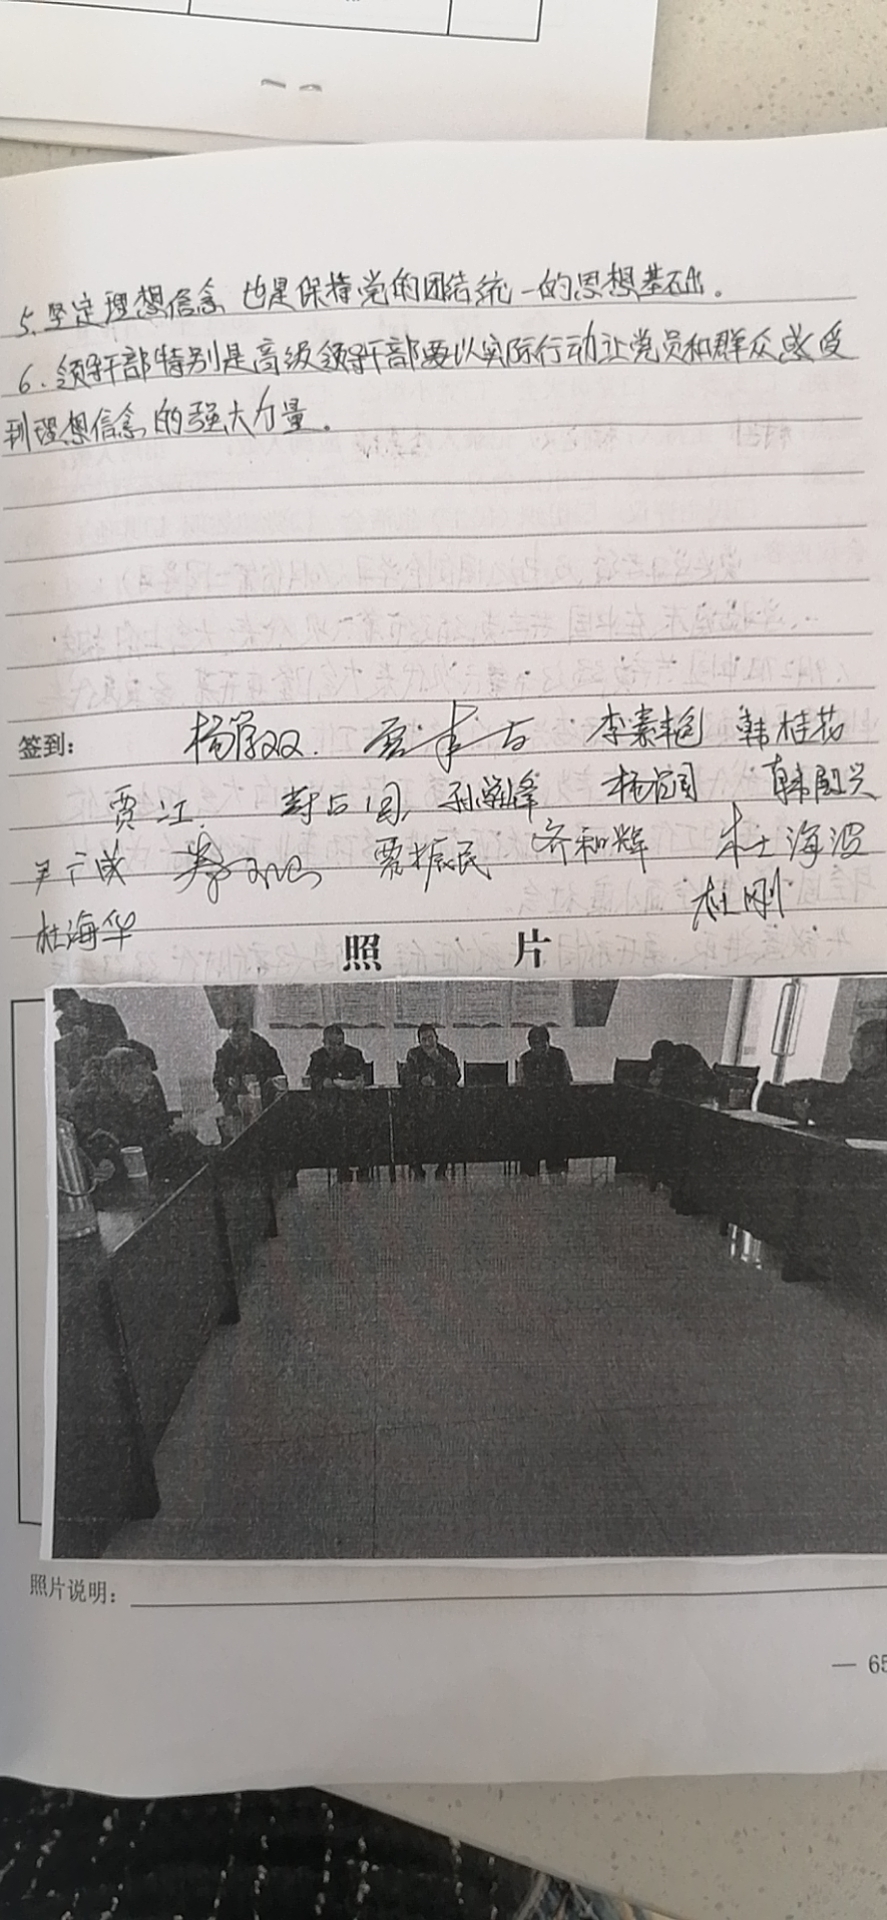 5.坚定理想信念 也是保持党的团结统一的思想基础。
6.领导干部特别是高级领导干部要以实际行动让党员和群众感受
到理想信念的强大力量。
签到: 李素艳 韩桂花
贾江
贾振民 齐和辉 杜海波
杜海华 杜刚
照 片
照片说明:
— 65